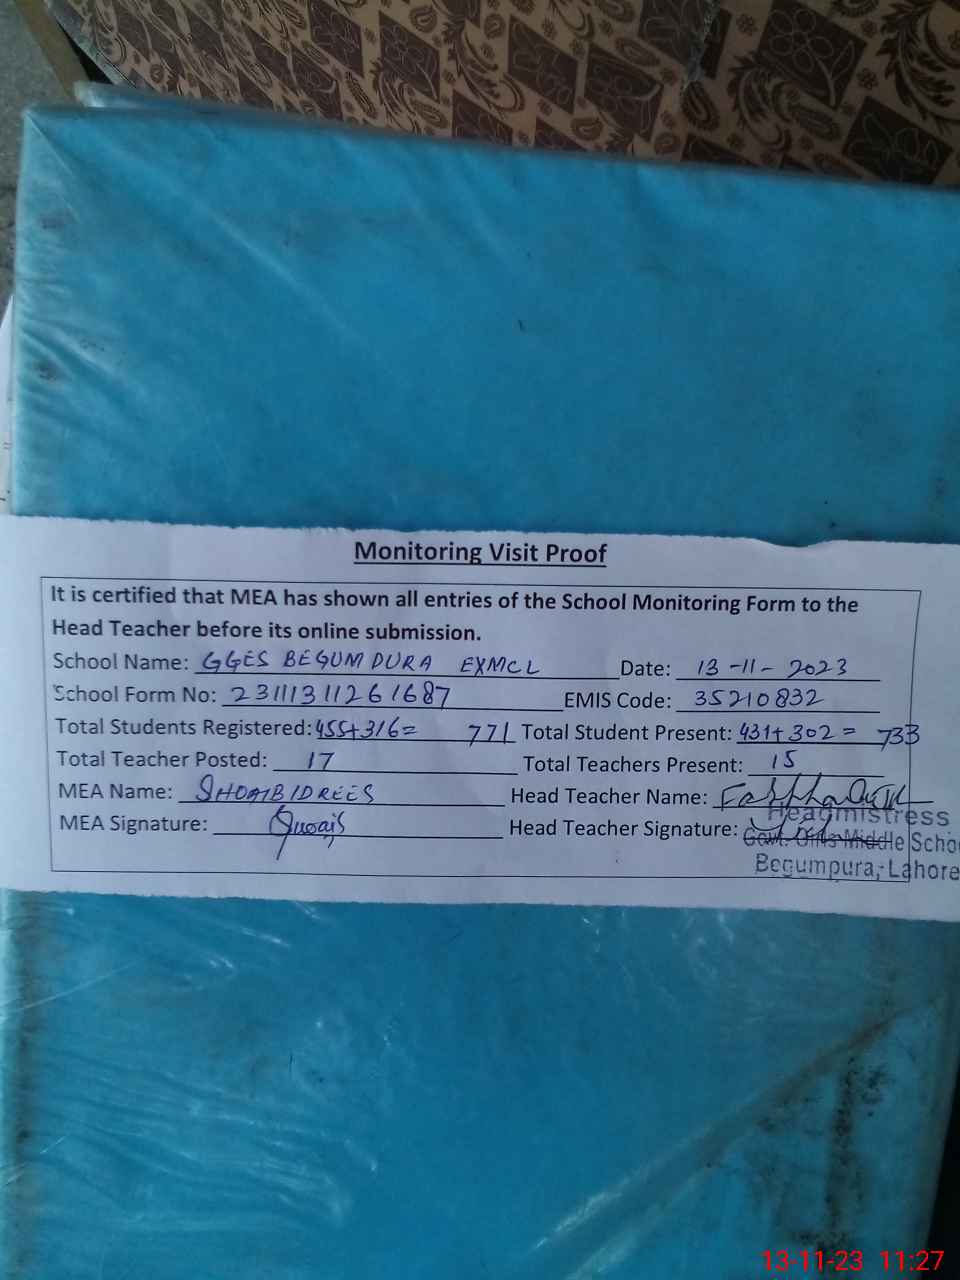 Monitoring Visit Proof
It is certified that MEA has shown all entries of the School Monitoring Form to the
Head Teacher before its online submission.
School Name: GGES BEGUM PURA EXMCL Date: 13-11-2023
School Form No: 23111311261687 EMIS Code: 35210832
Total Students Registered: 455+316= 771 Total Student Present: 431+302= 733
Total Teacher Posted: 17 Total Teachers Present: 15
MEA Name: SHOAIB IDREES Head Teacher Name:
MEA Signature: Head Teacher Signature:
Headmistress
Govt. Girls Middle Scho
Begumpura, Lahore
13-11-23 11:27